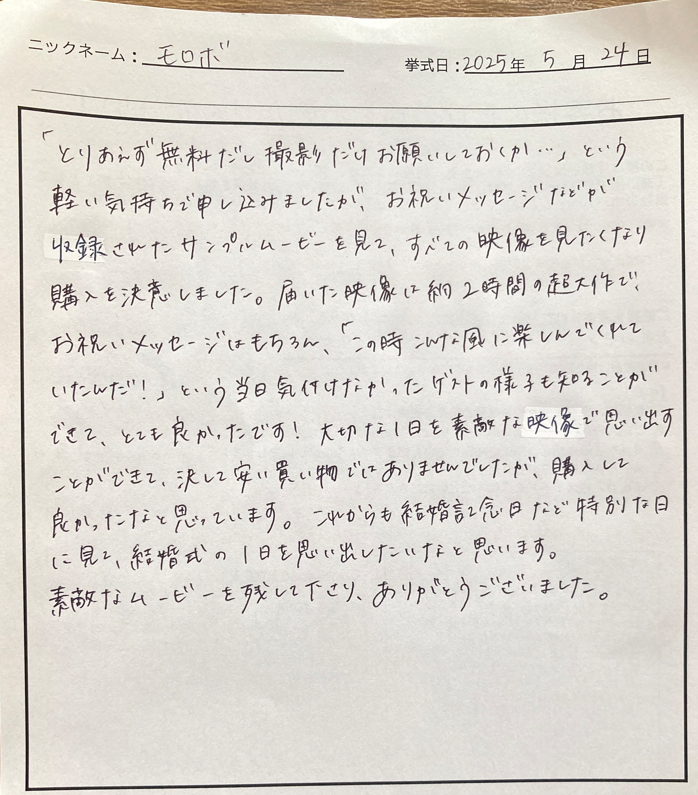 ニックネーム： モロボ
挙式日：2025年 5 月 24 日
「とりあえず無料だし撮影だけお願いしておくか…」という
軽い気持ちで申し込みましたが、お祝いメッセージなどが
収録されたサンプルムービーを見て、すべての映像を見たくなり
購入を決意しました。届いた映像は約2時間の超大作で、
お祝いメッセージはもちろん、「この時こんな風に楽しんでくれて
いたんだ！」という当日気付けなかったゲストの様子も知ることが
できて、とても良かったです！大切な1日を素敵な映像で思い出す
ことができて、決して安い買い物ではありませんでしたが、購入して
良かったなと思っています。これからも結婚記念日など特別な日
に見て、結婚式の1日を思い出したいなと思います。
素敵なムービーを残して下さり、ありがとうございました。